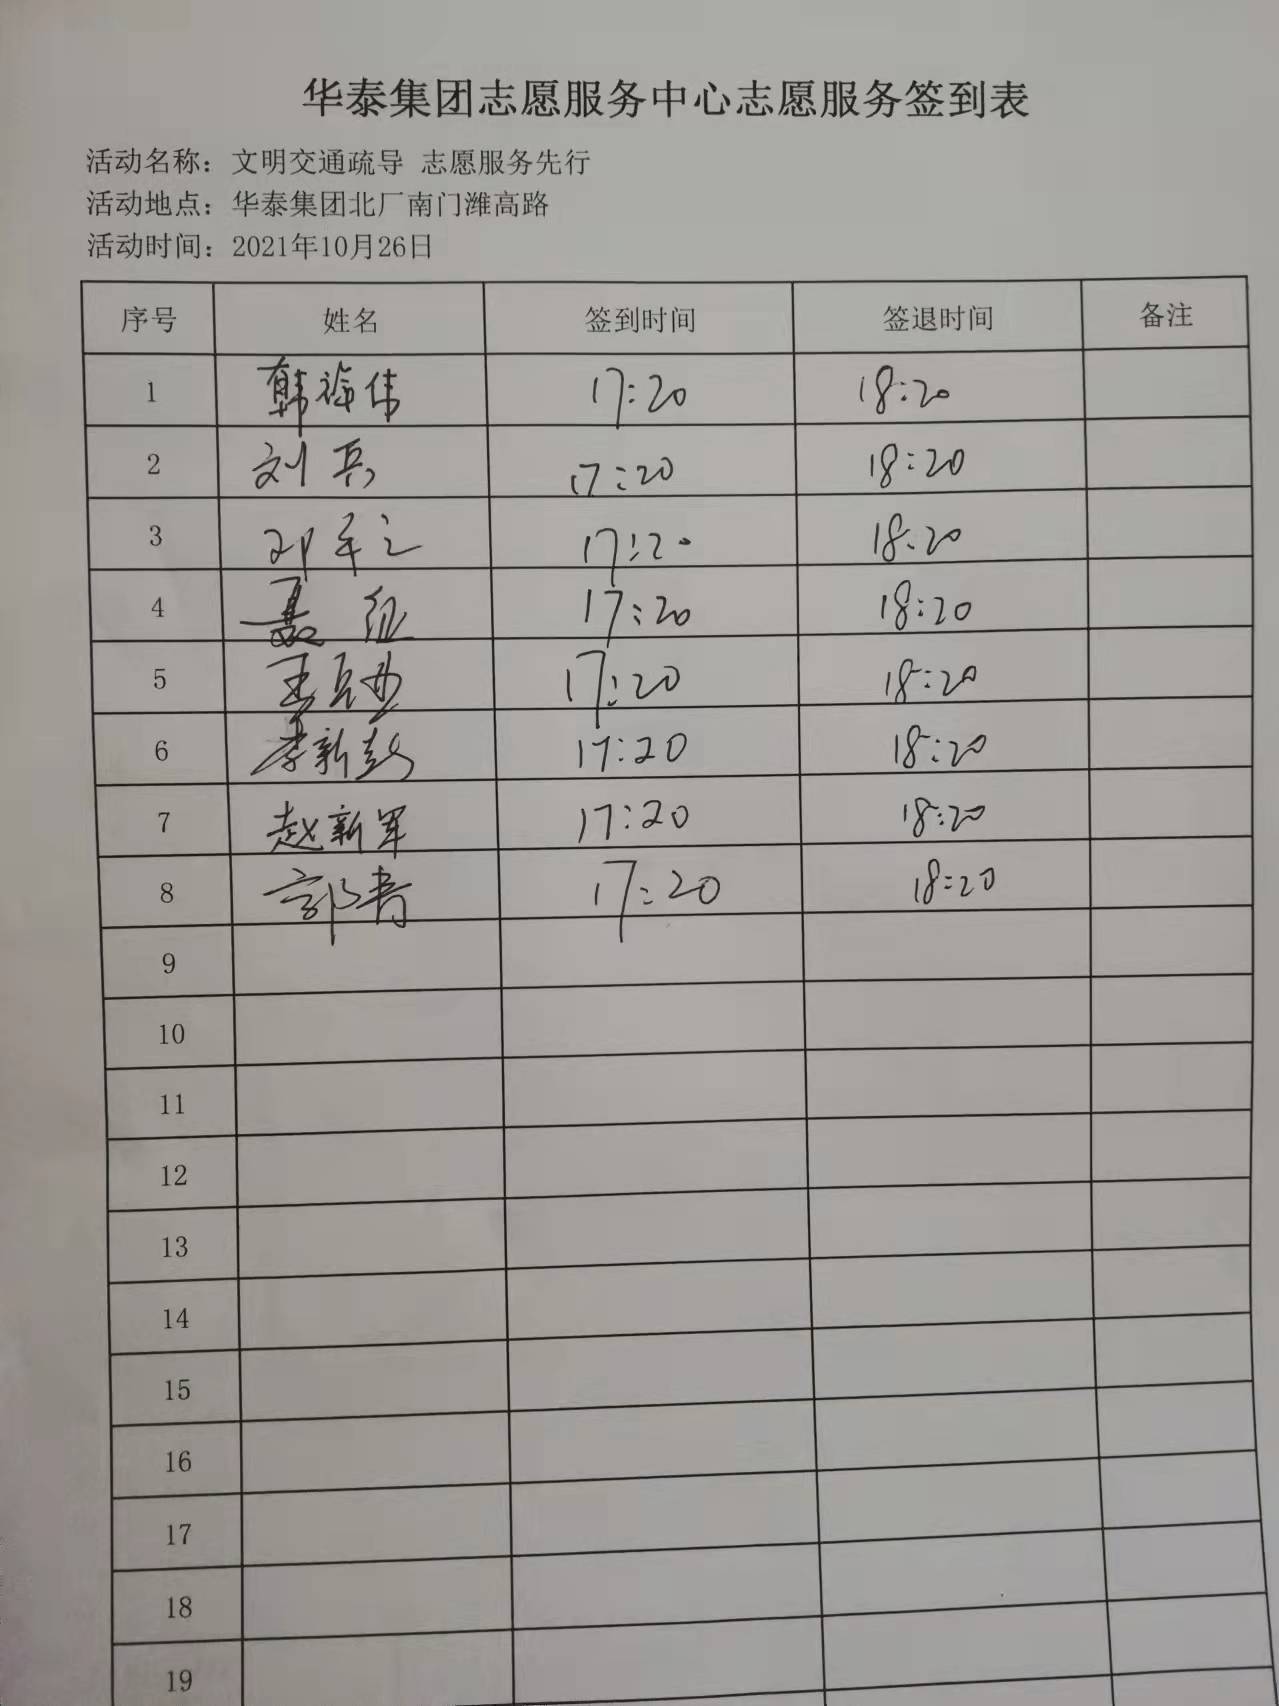 华泰集团志愿服务中心志愿服务签到表
活动名称：文明交通疏导 志愿服务先行
活动地点：华泰集团北厂南门潍高路
活动时间：2021年10月26日
序号 姓名 签到时间 签退时间 备注
1 韩 伟 17:20 18:20
2 刘兵 17:20 18:20
3 17:20 18:20
4 17:20 18:20
5 王 17:20 18:20
6 李新彭 17:20 18:20
7 赵新军 17:20 18:20
8 郭青 17:20 18:20
9
10
11
12
13
14
15
16
17
18
19